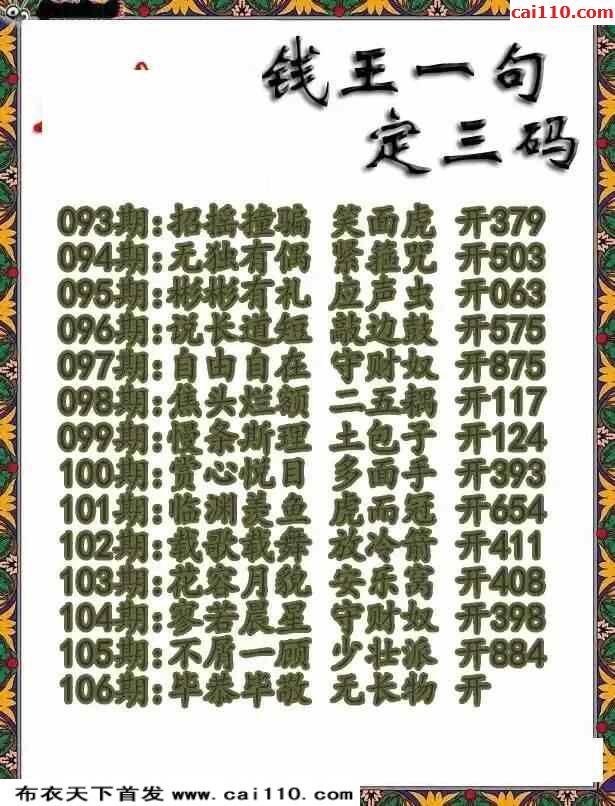 cai110.com
钱王一句
定三码
093期:招摇撞骗 笑面虎 开379
094期:无独有偶 紧箍咒 开503
095期:彬彬有礼 应声虫 开063
096期:说长道短 敲边鼓 开575
097期:自由自在 守财奴 开875
098期:焦头烂额 二五耦 开117
099期:慢条斯理 土包子 开124
100期:赏心悦目 多面手 开393
101期:临渊羡鱼 虎而冠 开654
102期:载歌载舞 放冷箭 开411
103期:花容月貌 安乐窝 开408
104期:寥若晨星 守财奴 开398
105期:不屑一顾 少壮派 开884
106期:毕恭毕敬 无长物 开
布衣天下首发 www.cai110.com